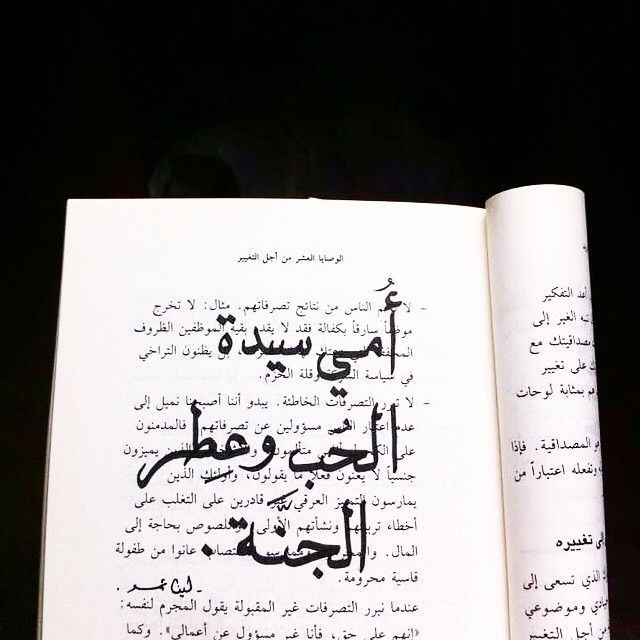 الوصايا العشر من أجل التغيير
أُمي سيدة
الحُب وعِطر
الجنَّة .
- لا الناس من نتائج تصرفاتهم. مثال: لا تخرج
موظفاً سارقاً بكفالة فقد لا يقدر بقية الموظفين الظروف
يظنون التراخي
في سياسة وقلة الحزم.
- لا تبرر التصرفات الخاطئة. يبدو أننا أصبحنا نميل إلى
عدم اعتبار مسؤولين عن تصرفاتهم. فالمدمنون
على يميزون
جنسياً لا يعنون فعلاً ما يقولون، وأولئك الذين
يمارسون التمييز العرقي غير قادرين على التغلب على
أخطاء تربيتهم ونشأتهم الأولى واللصوص بحاجة إلى
المال. عانوا من طفولة
قاسية محرومة.
عندما نبرر التصرفات غير المقبولة يقول المجرم لنفسه:
«إنهم على حق، فأنا غير مسؤول عن أعمالي». وكما
أعد التفكير
الغير إلى
مصداقيتك مع
على تغيير
بمثابة لوحات
المصداقية. فإذا
ونفعله اعتباراً من
تغييره
الذي تسعى إلى
وموضوعي
من أجل التغيير